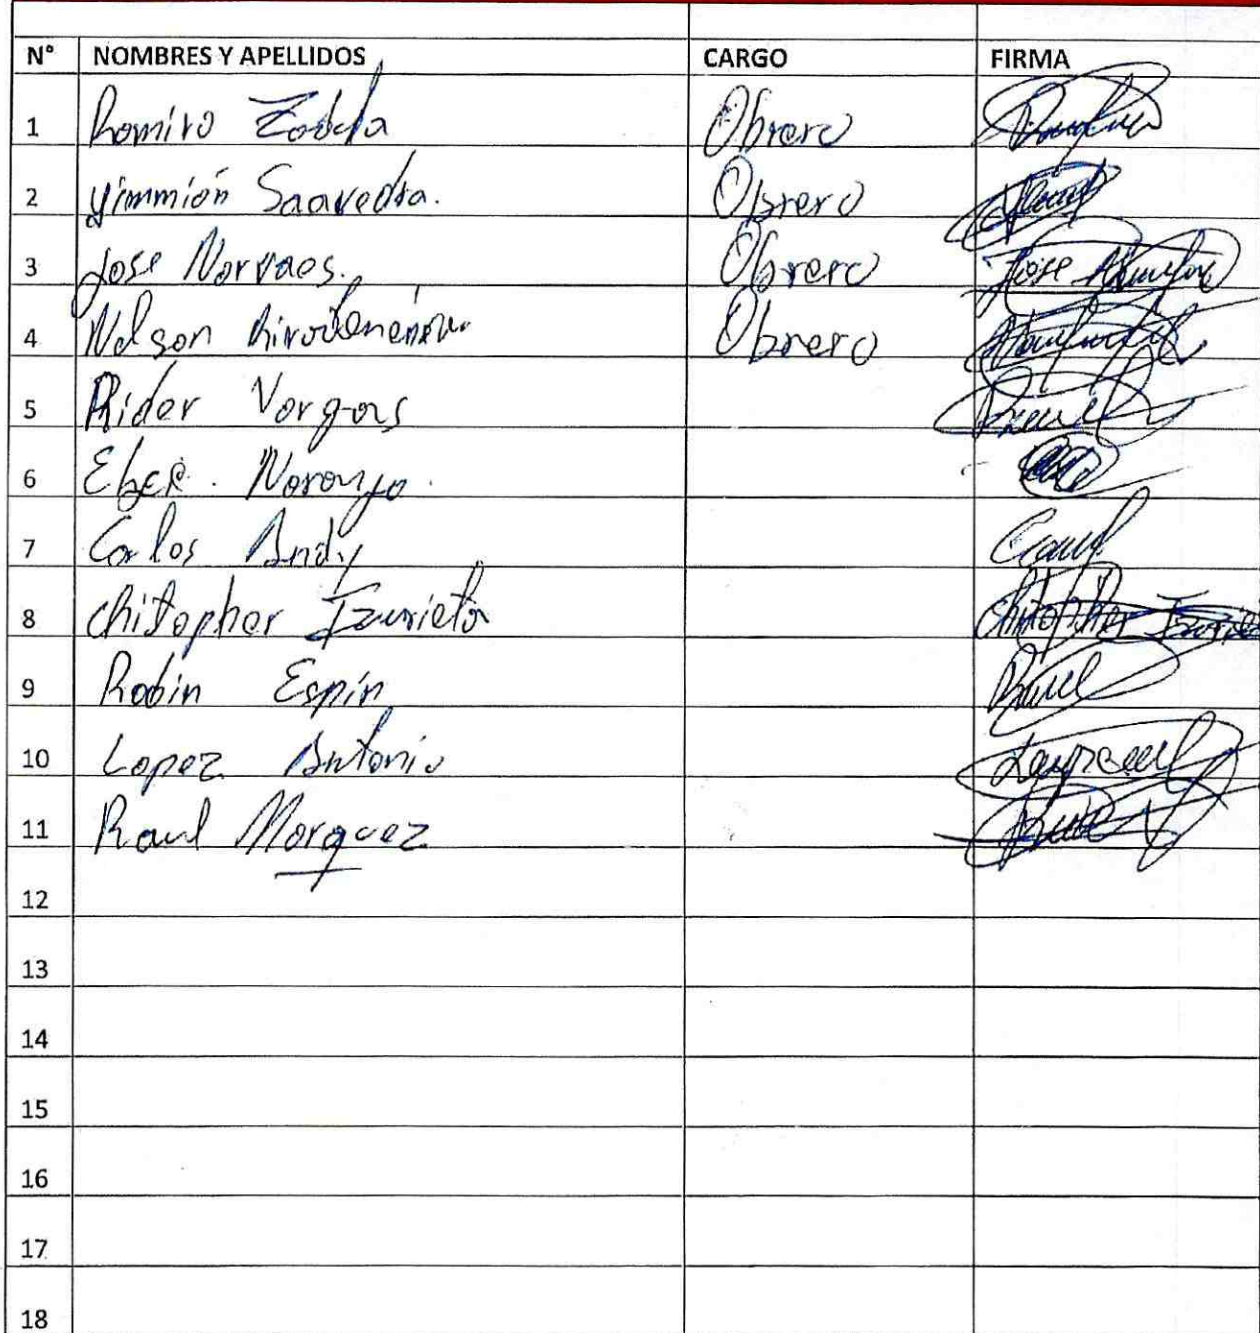 N° NOMBRES Y APELLIDOS CARGO FIRMA
1 Romiro Obrero
2 Yimmión Saavedra. Obrero
3 Jose Norvaes. Obrero Jose
4 Nelson Obrero
5 Rider Vorgas
6 Eber. Noronjo.
7 Carlos Andy
8 Chitopher Izurieta Chitopher Izurie
9 Robin Espín
10 Lopez Antonio
11 Raul Morquez
12
13
14
15
16
17
18